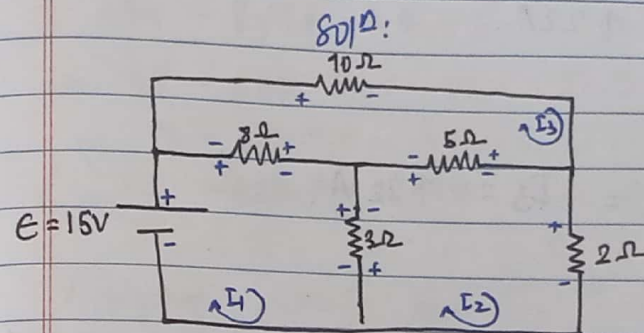 Soln:
10Ω
+ -
I3
- 8Ω +
+ -
5Ω
- +
+ -
+
E = 15V
-
+ -
3Ω
- +
+
2Ω
-
I1
I2